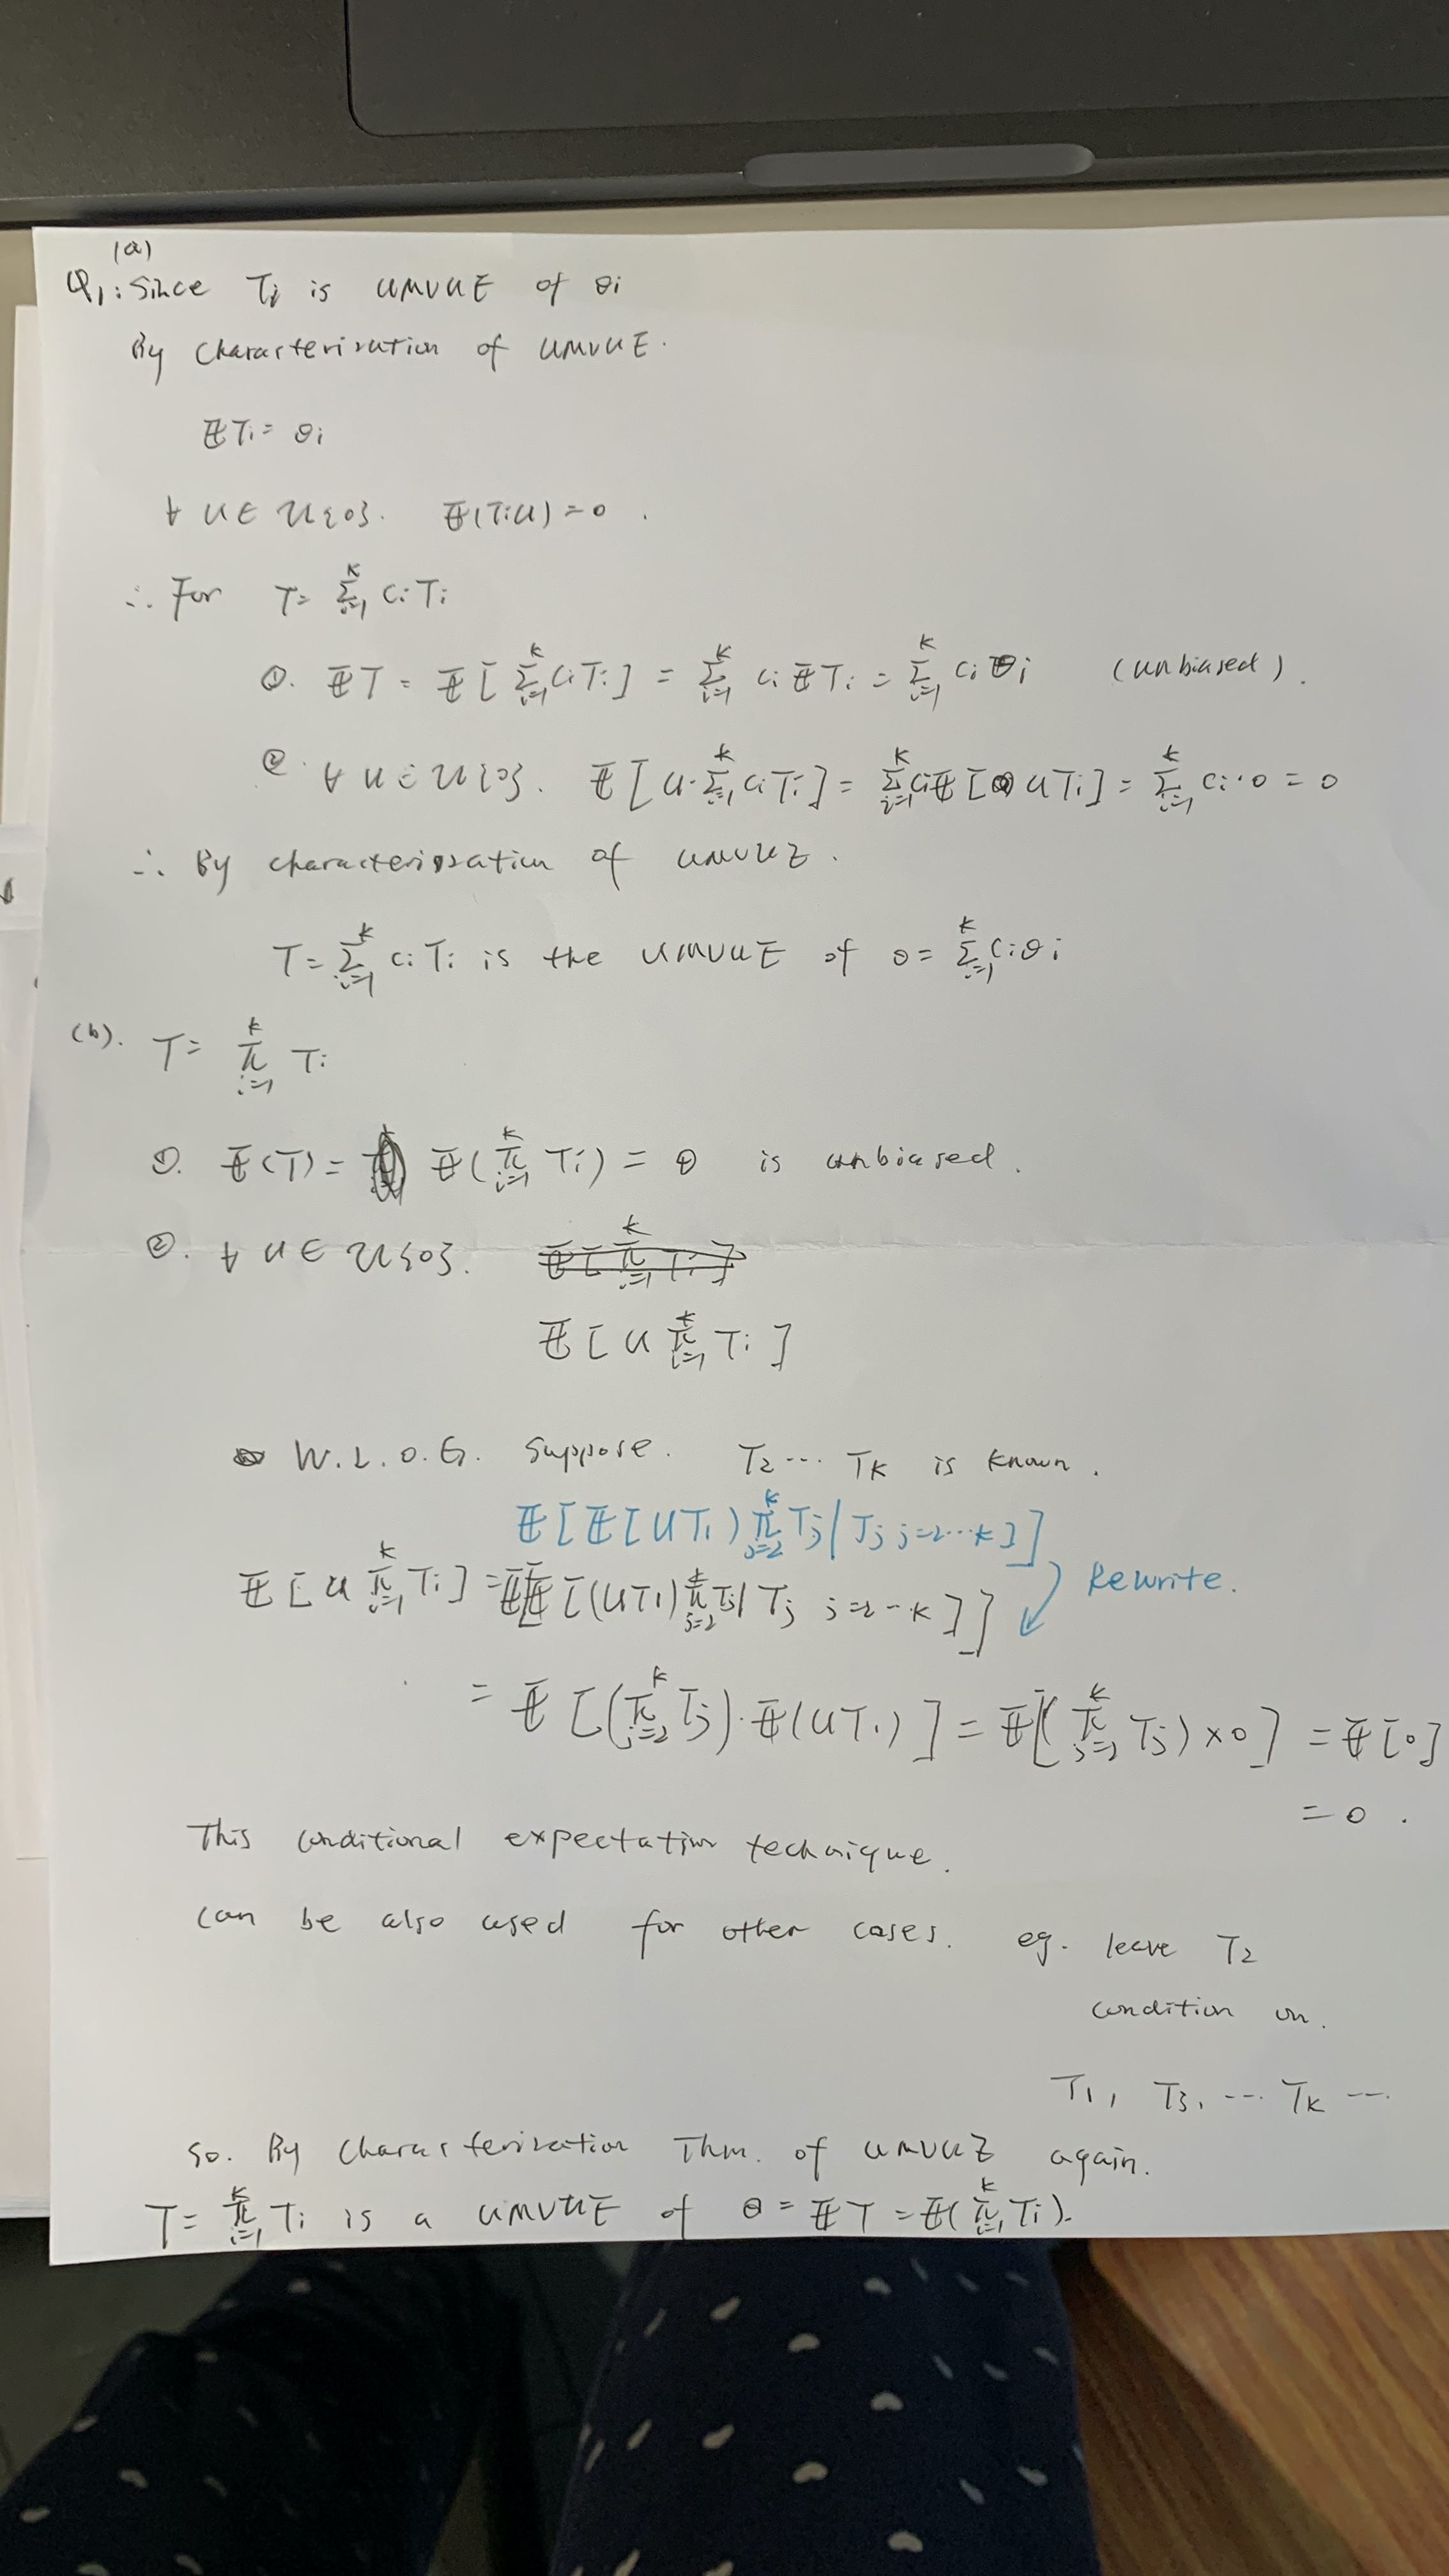 (a)
Q1: Since Ti is UMVUE of θi
By characterization of UMVUE.
𝔼Ti = θi
∀ U ∈ U{0}. 𝔼(TiU) = 0.
∴ For T = Σ_{i=1}^{k} ciTi
①. 𝔼T = 𝔼[Σ_{i=1}^{k} ciTi] = Σ_{i=1}^{k} ci𝔼Ti = Σ_{i=1}^{k} ciθi (unbiased).
②. ∀ U ∈ U{0}. 𝔼[U·Σ_{i=1}^{k} ciTi] = Σ_{i=1}^{k} ci𝔼[UTi] = Σ_{i=1}^{k} ci·0 = 0
∴ By characterization of UMVUE.
T = Σ_{i=1}^{k} ciTi is the UMVUE of θ = Σ_{i=1}^{k} ciθi
(b). T = π_{i=1}^{k} Ti
①. 𝔼(T) = 𝔼(π_{i=1}^{k} Ti) = θ is unbiased.
②. ∀ U ∈ U{0}. 𝔼[π_{i=1}^{k} Ti]
𝔼[U π_{i=1}^{k} Ti]
W.L.O.G. Suppose. T2 ... Tk is known.
𝔼[𝔼[UT1) π_{j=2}^{k} Tj | Tj j=2...k]]
𝔼[U π_{i=1}^{k} Ti] = 𝔼[𝔼[(UT1) π_{j=2}^{k} Tj | Tj j=2-k]] Rewrite.
= 𝔼[(π_{j=2}^{k} Tj)·𝔼(UT1)] = 𝔼[(π_{j=2}^{k} Tj)×0] = 𝔼[0]
= 0.
This conditional expectation technique.
can be also used for other cases. eg. leave T2
condition on.
T1, T3, ... Tk ...
So. By characterization Thm. of UMVUE again.
T = π_{i=1}^{k} Ti is a UMVUE of θ = 𝔼T = 𝔼(π_{i=1}^{k} Ti).